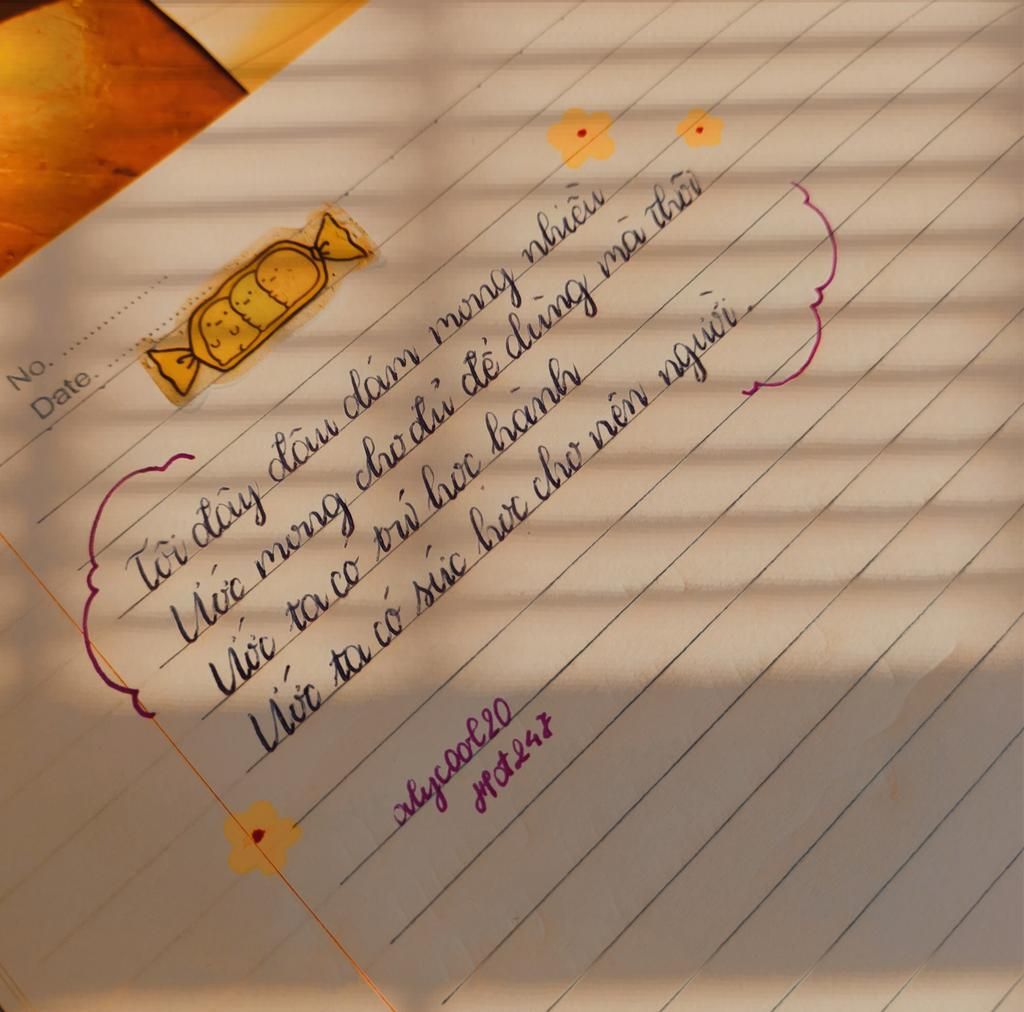 No.
Date.
Tôi đây đâu dám mong nhiều
Ước mong cho đủ để dùng mà thôi
Ước ta có trí học hành
Ước ta có sức học cho nên người.
alycool20
Hot247